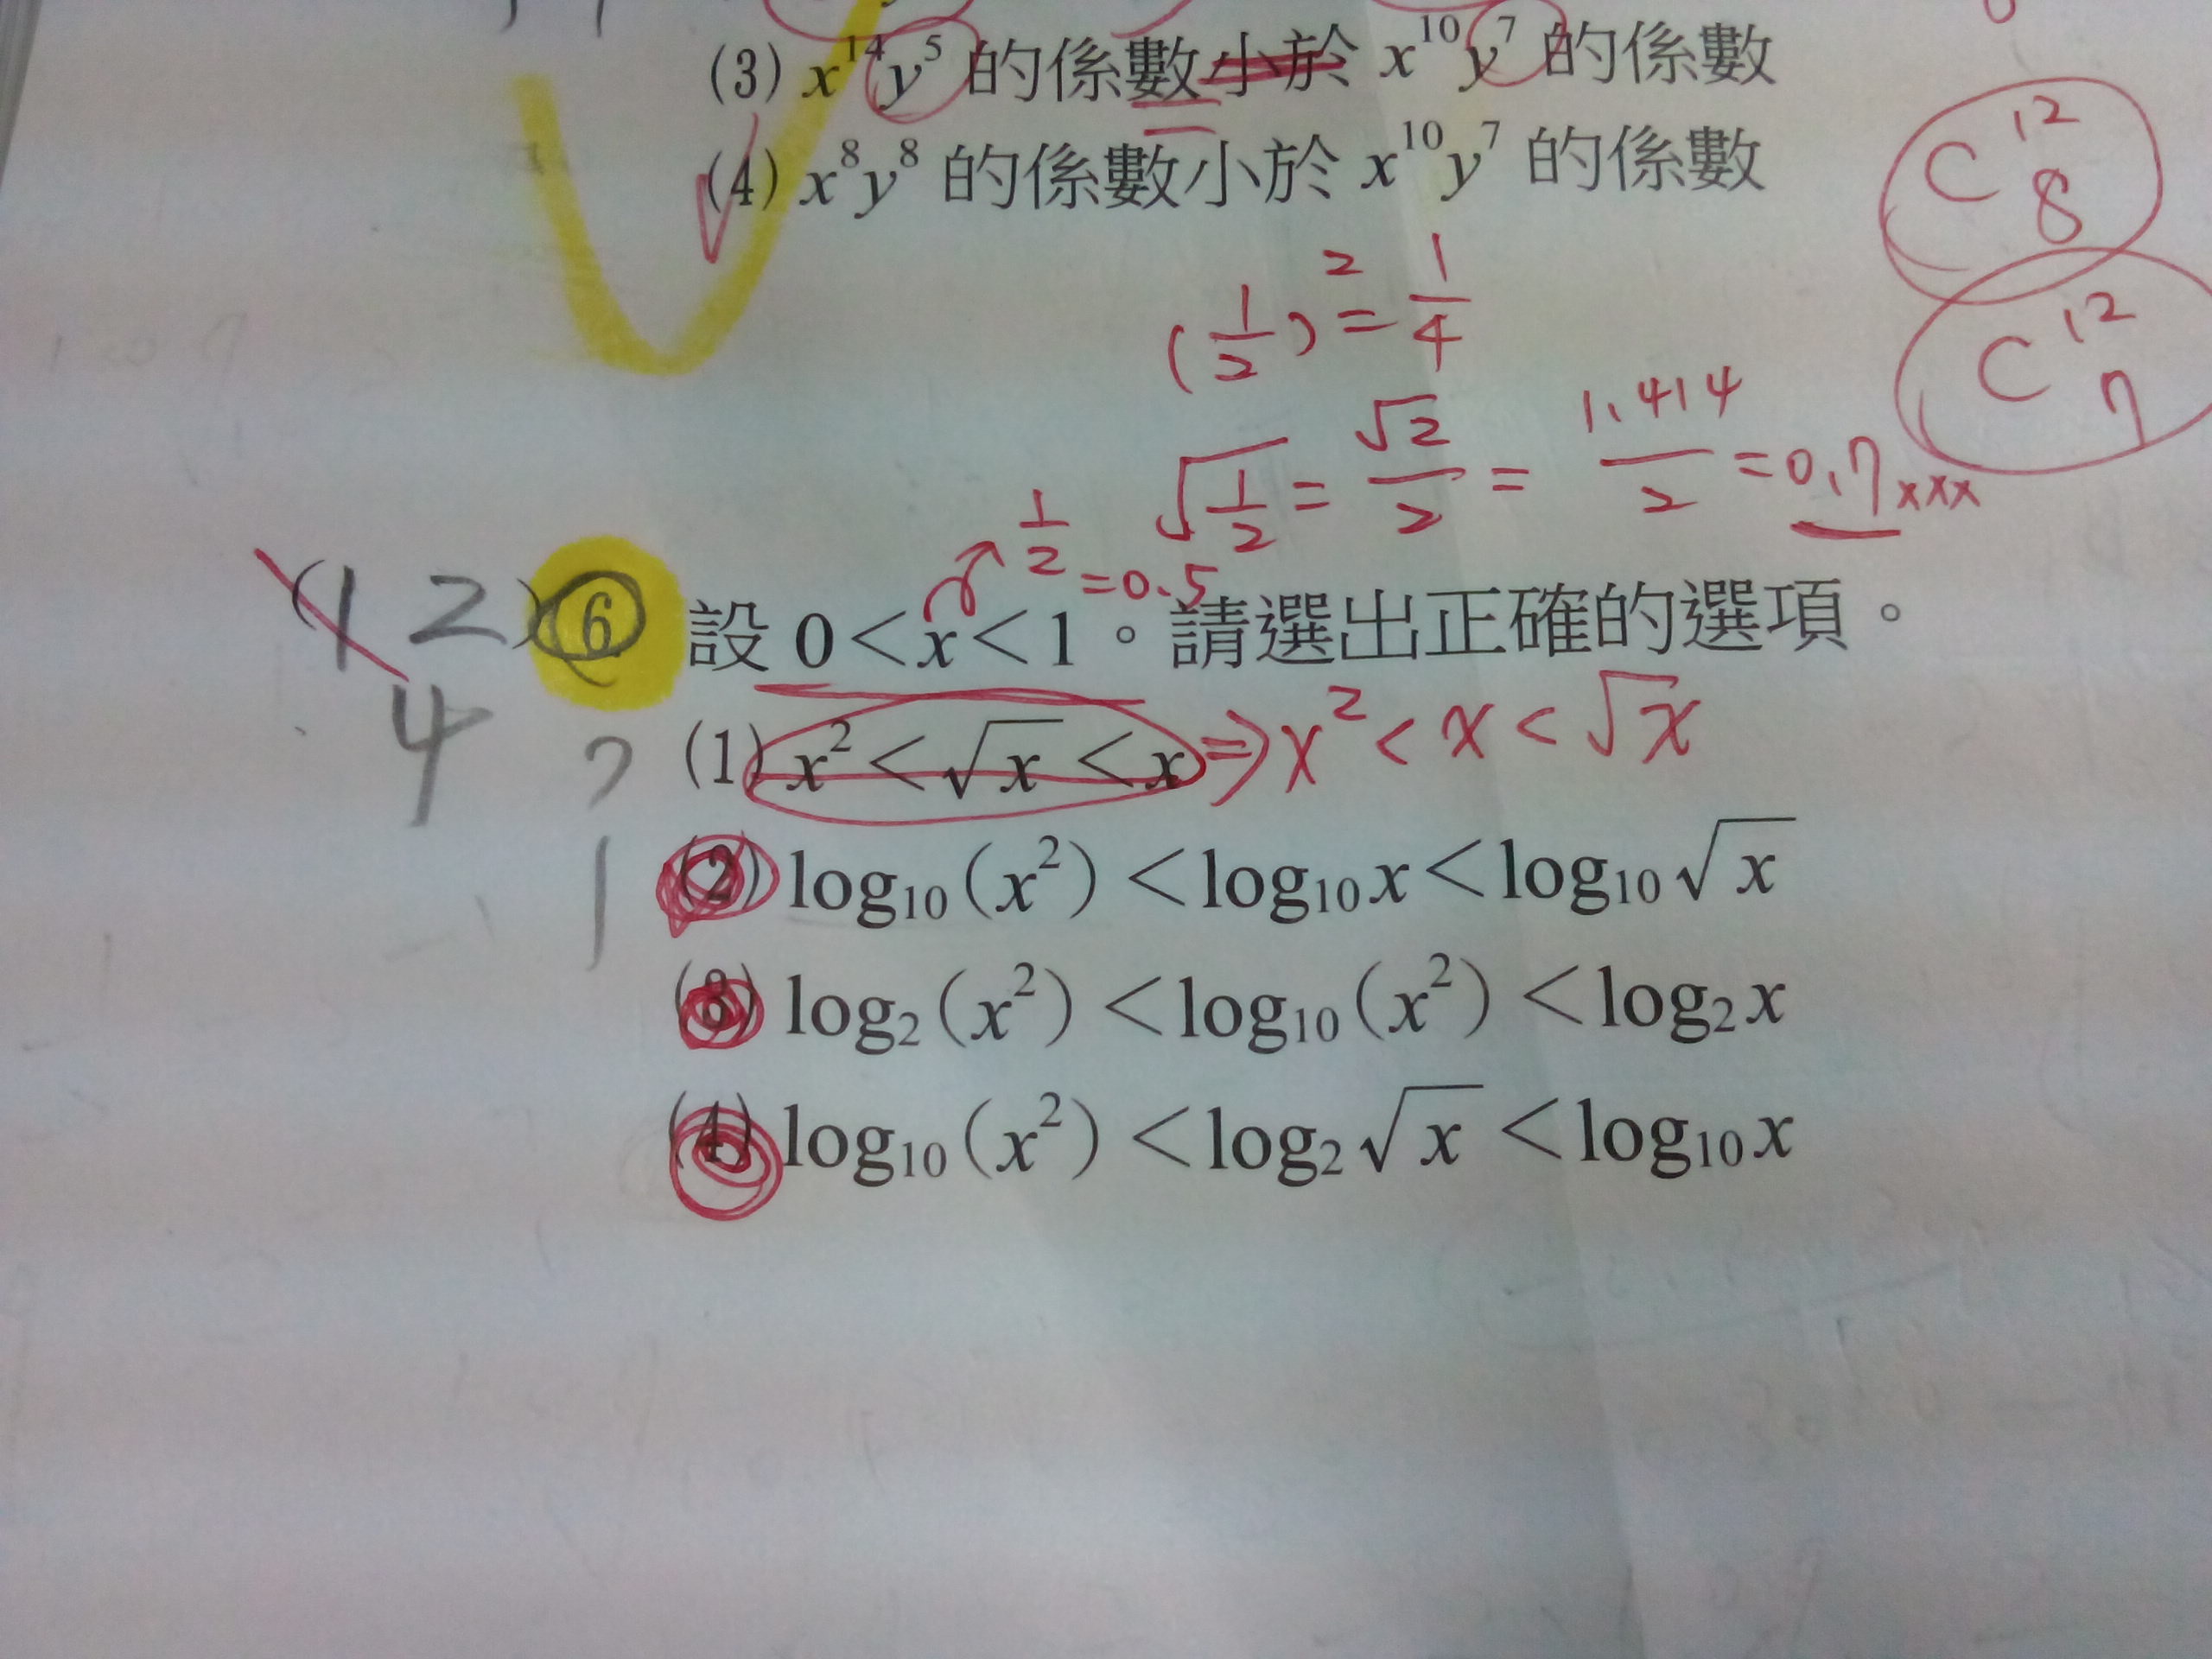 (3) x¹⁴y⁵ 的係數小於 x¹⁰y⁷ 的係數
(4) x⁸y⁸ 的係數小於 x¹⁰y⁷ 的係數
C¹²₈
(1/2)² = 1/4
C¹²₇
√(1/2) = √2/2 = 1.414/2 = 0.7xxx
1/2 = 0.5
(1 2) 6. 設 0<x<1。請選出正確的選項。
4
?
(1) x²<√x<x ⇒ x² < x < √x
(2) log₁₀(x²)<log₁₀x<log₁₀√x
(3) log₂(x²)<log₁₀(x²)<log₂x
(4) log₁₀(x²)<log₂√x<log₁₀x